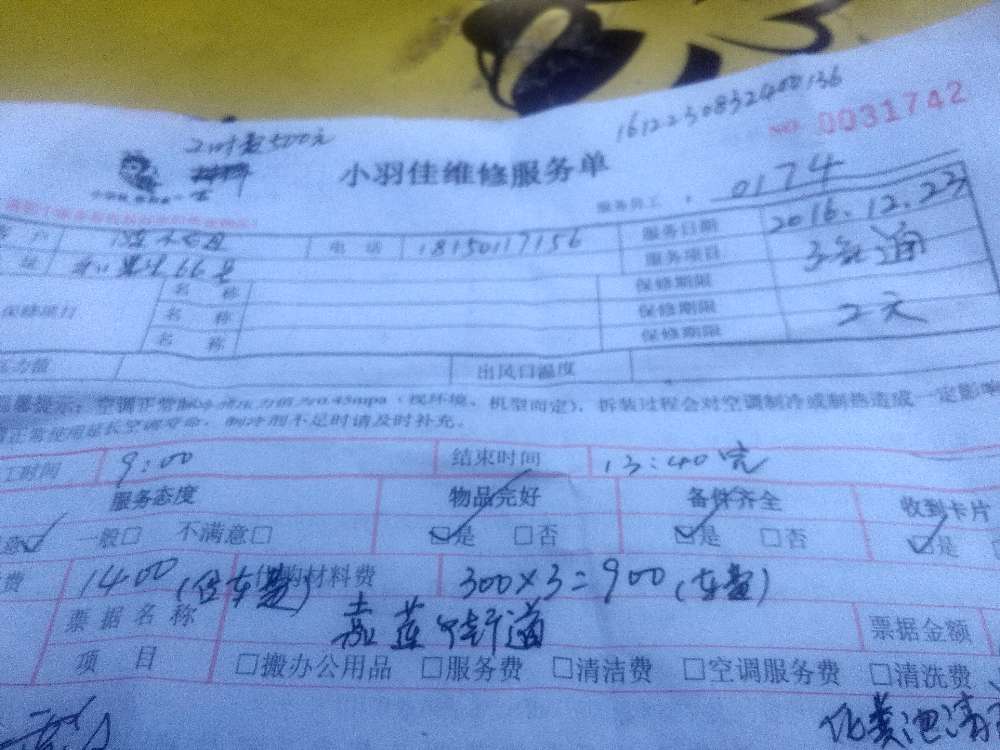 16122308832400136
NO 0031742
2时起500元
小羽佳维修服务单
服务员工： 0174
客户 电话 18150117156 服务日期 2016.12.23
址 66号 服务项目 通
保修项目 名称 保修期限
名称 保修期限 2元
名称 保修期限
压力值 出风口温度
温馨提示：空调正常制冷时压力值为0.45mpa（视环境、机型而定），拆装过程会对空调制冷或制热造成一定影响
正常使用延长空调寿命，制冷剂不足时请及时补充。
工时间 9:00 结束时间 13:40完
服务态度 物品完好 备件齐全 收到卡片
意☑ 一般□ 不满意□ ☑是 □否 ☑是 □否 ☑是
费 1400 代购材料费 300×3=900
票据名称 嘉莲街道 票据金额
项目 □搬办公用品 □服务费 □清洁费 □空调服务费 □清洗费
化粪池清